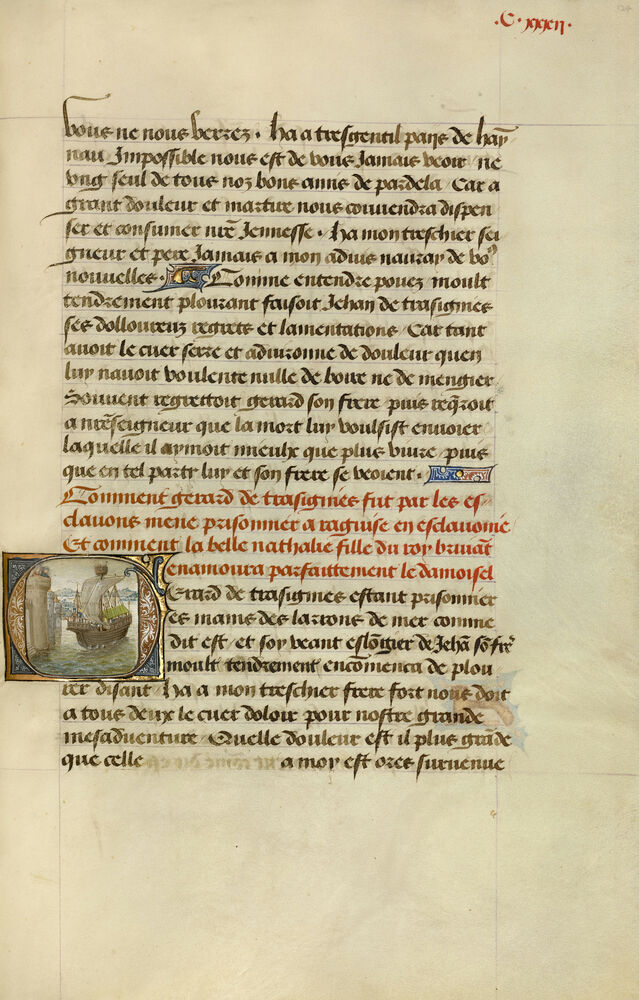 .C.xxxii.
124
vous ne nous verrez. ha a tresgentil pays de hay
nau Impossible nous est de vous Jamais veoir ne
vng seul de tous noz bons amis de pardela Car a
grant douleur et martire nous couuendra dispen
ser et consumer nr̄e Jennesse. ha mon treschier sei
gneur et pere Jamais a mon aduis nauray de vo9
nouuelles. Comme entendre pouez moult
tendrement plourant faisoit Jehan de trasignies
ses dolloureux regretz et lamentations Car tant
auoit le cuer serre et aduironne de douleur quen
luy nauoit voulente nulle de boire ne de mengier
Souuent regrettoit gerard son frere puis req̄roit
a nr̄eseigneur que la mort luy voulsist enuoier
laquelle il aymoit mieulx que plus viure puis
que en tel party luy et son frere se veoient.
Comment gerard de trasignies fut par les es
clauons mene prisonnier a raguise en esclauonie
Et comment la belle nathalie fille du roy bruiāt
enamoura parfaittement le damoisel
Gerard de trasignies estant prisonnier
es mains des larrons de mer comme
dit est et soy veant eslongier de Jehā sō fr̄e
moult tendrement encomenca de plou
rer disant ha a mon treschier frere fort nous doit
a tous deux le cuer doloir pour nostre grande
mesaduenture Quelle douleur est il plus grāde
que celle a moy est ores suruenue